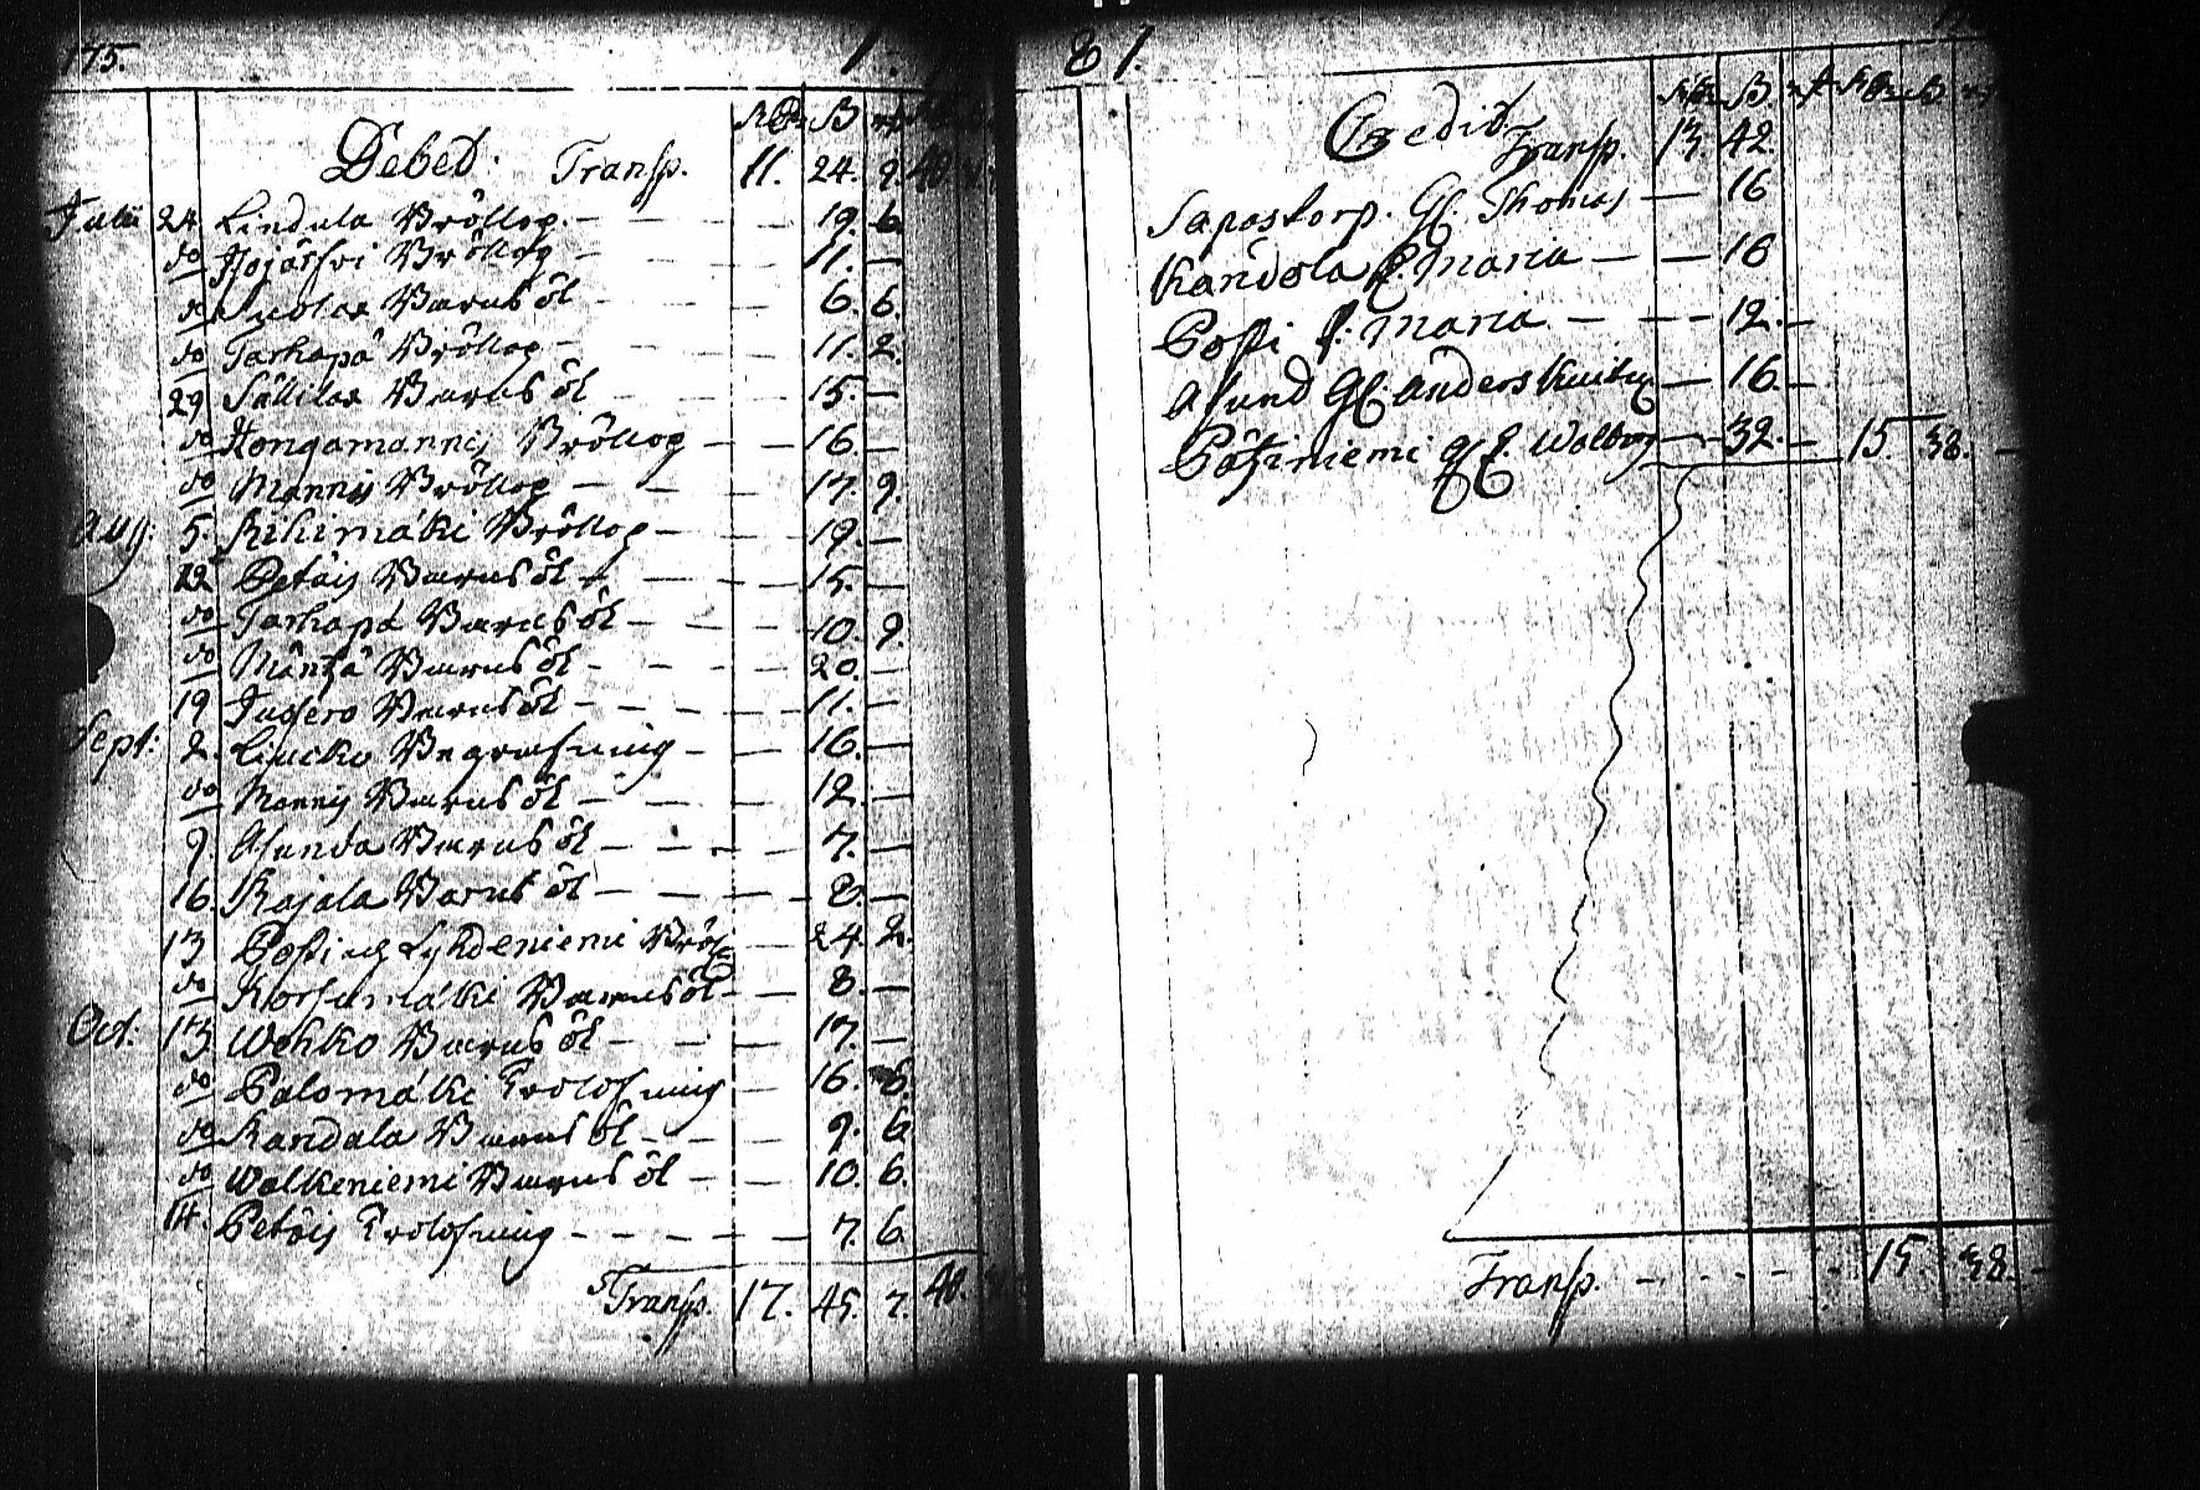 175.
1
Rdr ß rst
Debet. Transp. 11. 24. 9. 40.
Julii 24 Lindula Bröllop. — — — 19. 6.
do Hojärfvi Bröllop — — 11. —
do Barns öl — — 6. 6.
do Tarkapä Bröllop — — 11. 2.
29 Sällilae Barns öl — — 15. —
do Hongamannis Bröllop — — 16. —
do Mannis Bröllop — — — 17. 9.
Aug: 5. Rihimäki Bröllop — — — 19. —
12 Petäis Barns öl — — — 15. —
do Tarkapä Barns öl — — — 10. 9.
do Mäntzä Barns öl — — — 20. —
19 Barns öl — — — 11. —
Sept: 2. Liucko Begrafning — — 16. —
do Mannis Barns öl — — — 12. —
9. Asunda Barns öl — — — 7. —
16. Rajala Barns öl — — — 8. —
13 Posti och Lyhdeniemi Bröl: — 24. 2.
do Korsumäki Barns öl — — 8. —
Oct: 13 Wehko Barns öl — — — 17. —
do Palomäki Trolofning — 16. 6.
do Kandala Barns öl — — — 9. 6.
do Walkeniemi Barns öl — — 10. 6.
14. Petäis Trolofning — — — — — 7. 6.
Transp. 17. 45. 7. 40.
81.
Rdr ß. rst Rdr ß rst
Credit Transp. 13. 42.
Sapastorp. Gl. Thomas — 16
Kandola P. Maria — — 16
Posti P. Maria — — — 12. —
Asund Gl. Anders — 16. —
Pätziniemi Gl. P. Walborg — 32. — 15. 38. —
Transp. — — — — — 15. 38. —